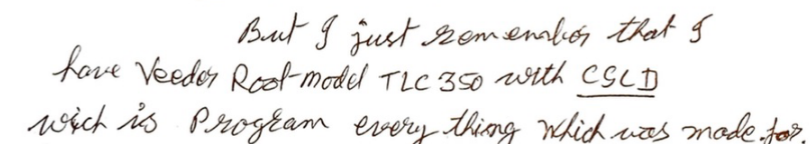 But I just remember that I
have Veeder Root model TLC 350 with CSLD
wich is Program every thing which was made for.